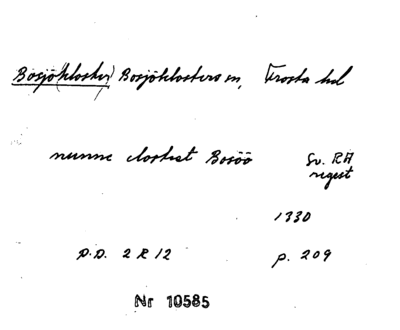 Bosjö(kloster) Bosjöklosters sn, Frosta hd
nunne closteret Bosöö Sv. RA
regest
1330
D.D. 2 R 12 p. 209
Nr 10585